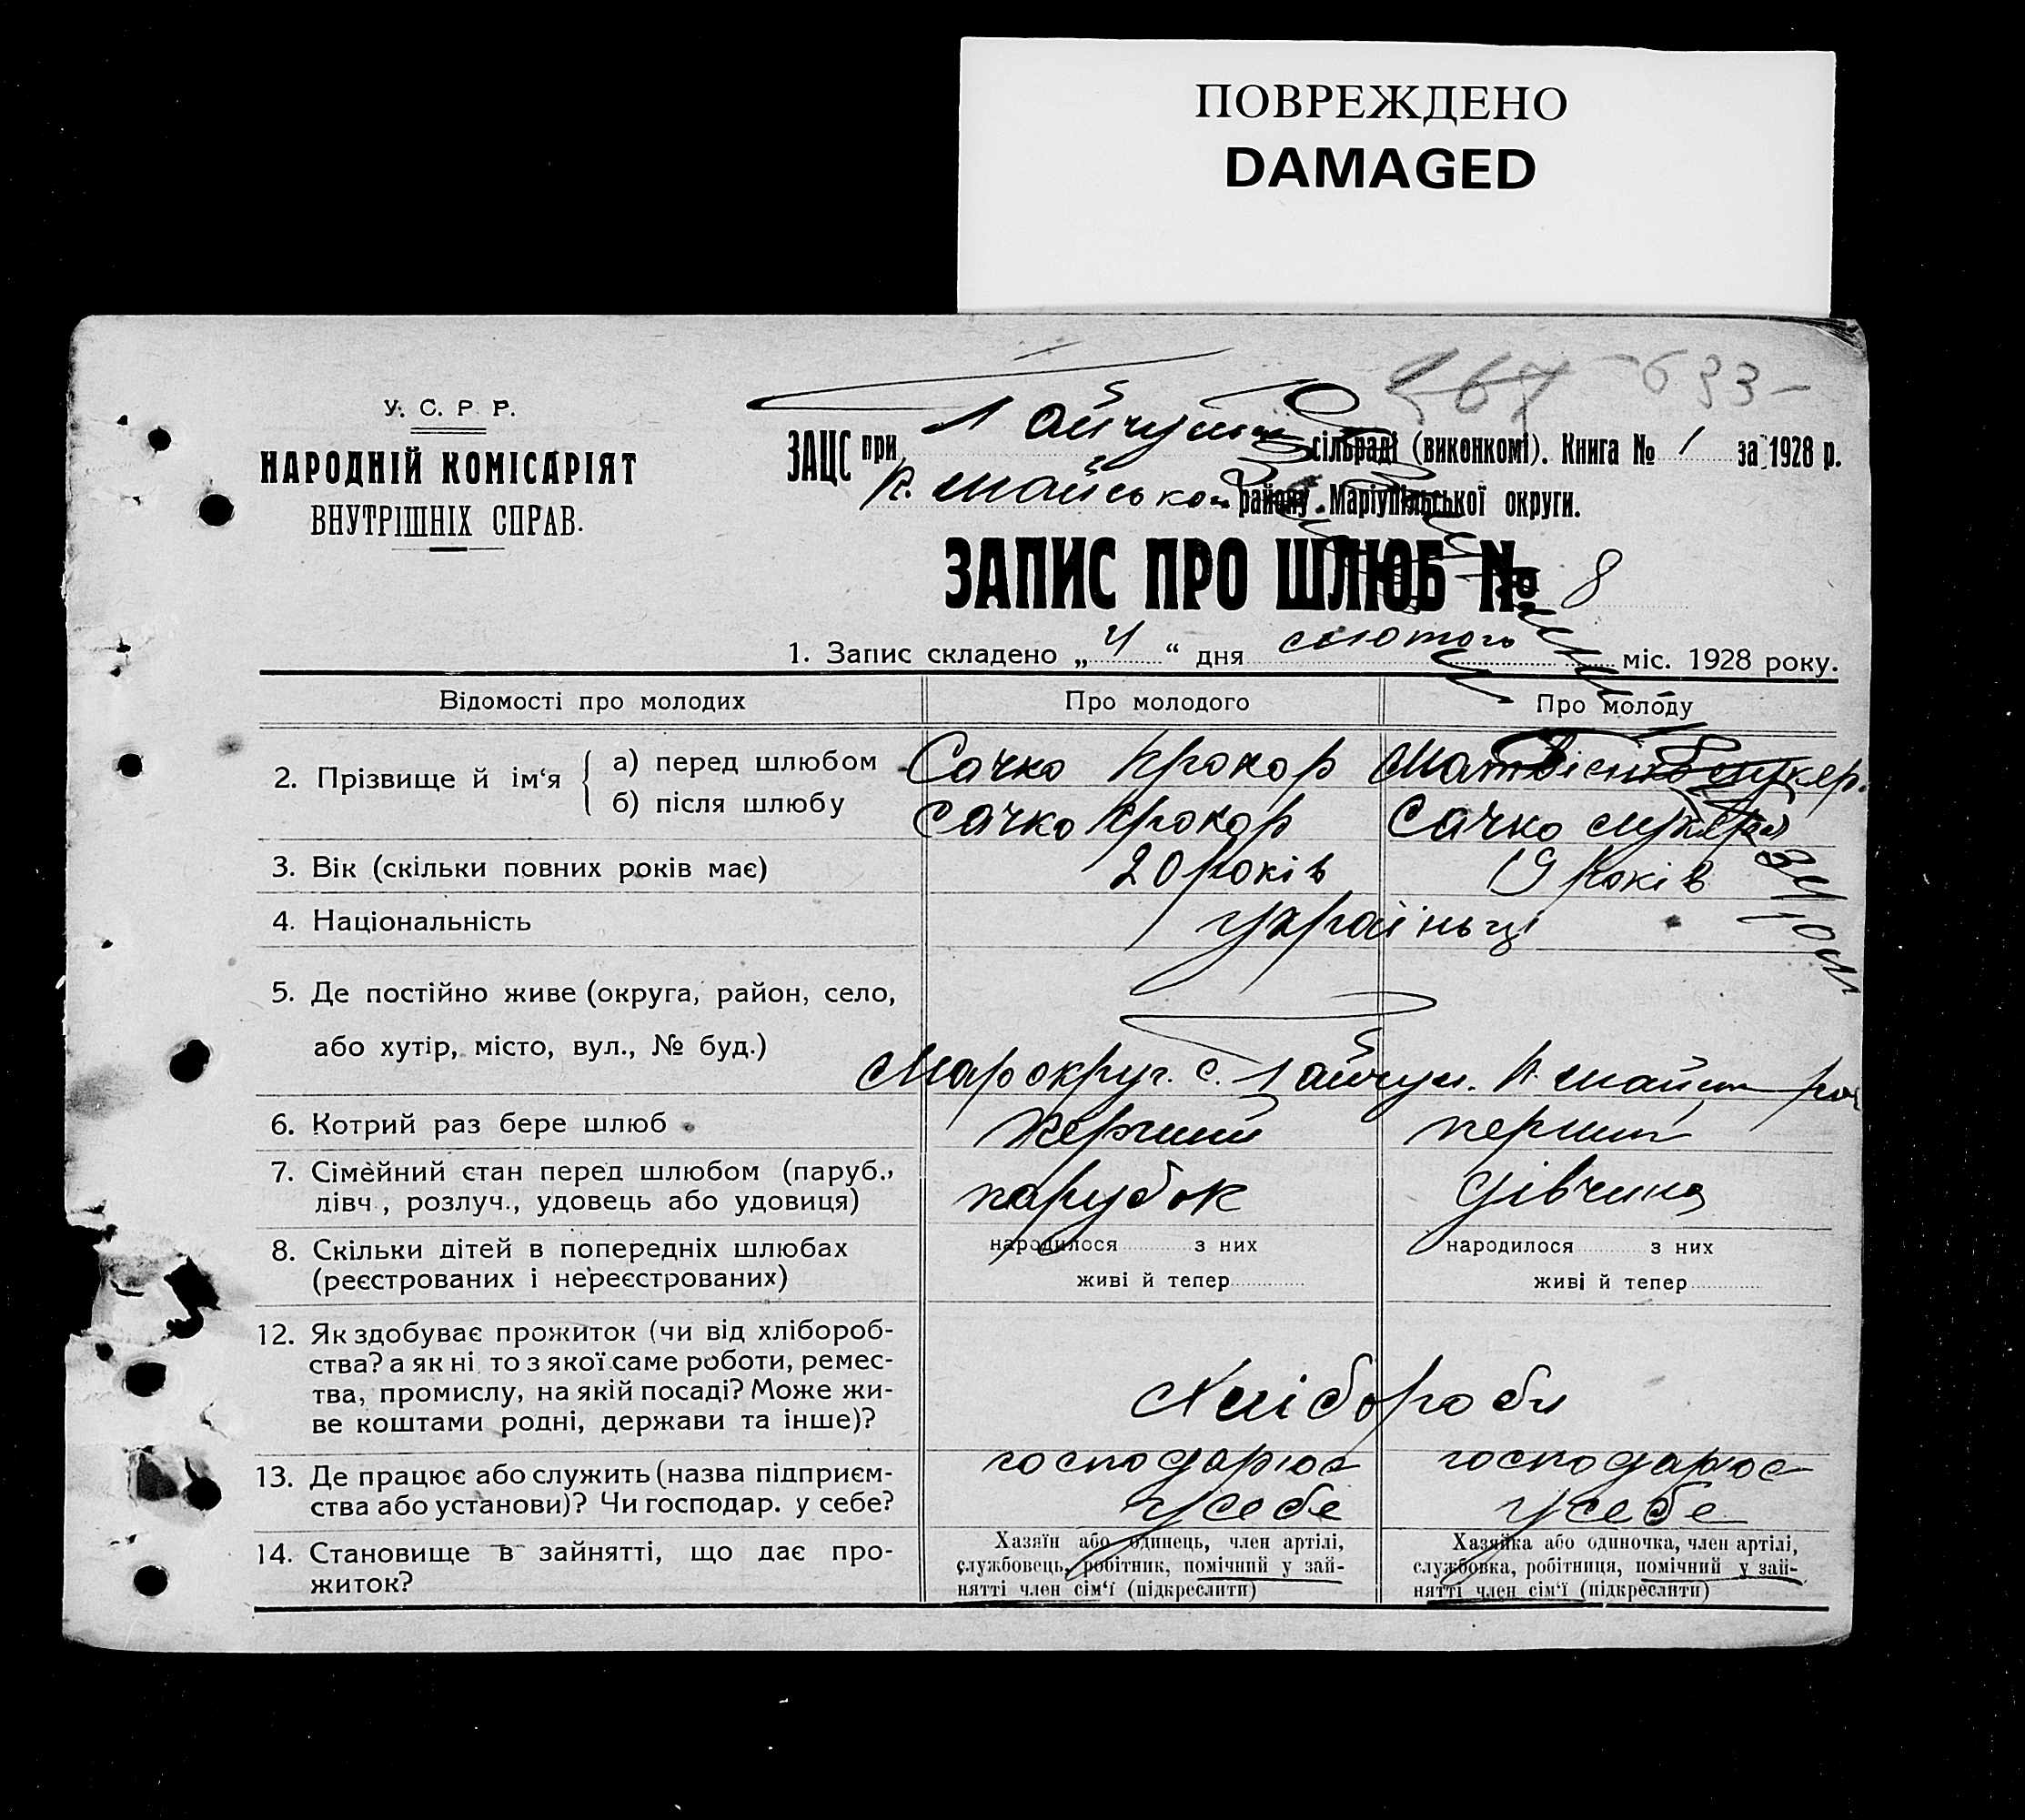 ПОВРЕЖДЕНО
DAMAGED
693-
У. С. Р. Р.
НАРОДНІЙ КОМІСАРІЯТ
ВНУТРІШНІХ СПРАВ.
ЗАЦС при Гайчул сільраді (виконкомі). Книга № 1 за 1928 р.
району Маріупільської округи.
ЗАПИС ПРО ШЛЮБ № 8
1. Запис складено „ 4 “ дня лютого міс. 1928 року.
Відомості про молодих
Про молодого
Про молоду
2. Прізвище й ім‘я
а) перед шлюбом Сачко Прокор
б) після шлюбу Сачко Прокор Сачко
3. Вік (скільки повних років має) 20 років 19 років
4. Національність україньці
5. Де постійно живе (округа, район, село,
або хутір, місто, вул., № буд.) Мар округ. с. Гайчул.
6. Котрий раз бере шлюб перший перший
7. Сімейний стан перед шлюбом (паруб.,
дівч., розлуч., удовець або удовиця) парубок дівчина
8. Скільки дітей в попередніх шлюбах
(реєстрованих і нереєстрованих)
народилося з них
живі й тепер
народилося з них
живі й тепер
12. Як здобуває прожиток (чи від хлібороб-
ства? а як ні, то з якої саме роботи, ремес-
тва, промислу, на якій посаді? Може жи-
ве коштами родні, держави та інше)?
Хлібороби
13. Де працює або служить (назва підприєм-
ства або установи)? Чи господар. у себе?
господарює
у себе
господарює
у себе
14. Становище в зайнятті, що дає про-
житок?
Хазяїн або одинець, член артілі,
службовець, робітник, помічний у зай-
нятті член сім‘ї (підкреслити)
Хазяйка або одиночка, член артілі,
службовка, робітниця, помічний у зай-
нятті член сім‘ї (підкреслити)